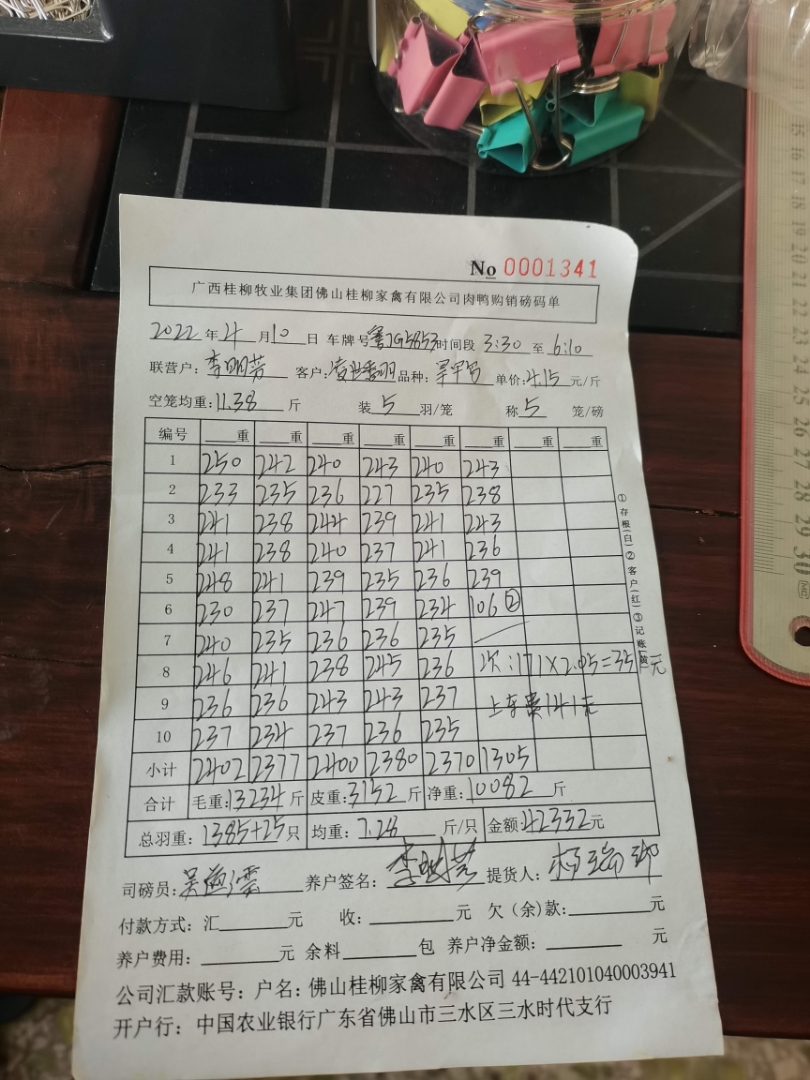 No 0001341
广西桂柳牧业集团佛山桂柳家禽有限公司肉鸭购销磅码单
2022 年 4 月 10 日 车牌号 时间段 3:30 至 6:10
联营户: 李明芳 客户: 品种: 单价: 4.15 元/斤
空笼均重: 11.38 斤 装 5 羽/笼 称 5 笼/磅
编号 重 重 重 重 重 重 重 重
1 250 242 240 243 240 243
2 233 235 236 227 235 238
3 241 238 244 239 241 243
4 241 238 240 237 241 236
5 248 241 239 235 236 239
6 230 237 247 239 234 106 ②
7 240 235 236 236 235
8 246 241 238 245 236 次:171×2.05=351元
9 236 236 243 243 237 上车费141元
10 237 234 237 236 235
小计 2402 2377 2400 2380 2370 1305
合计 毛重: 13234 斤 皮重: 3152 斤 净重: 10082 斤
总羽重: 1385+25 只 均重: 7.28 斤/只 金额: 42332 元
司磅员: 养户签名: 李明芳 提货人:
付款方式: 汇 元 收: 元 欠(余)款: 元
养户费用: 元 余料 包 养户净金额: 元
公司汇款账号: 户名: 佛山桂柳家禽有限公司 44-442101040003941
开户行: 中国农业银行广东省佛山市三水区三水时代支行
①存根(白)②客户(红)③记账(黄)